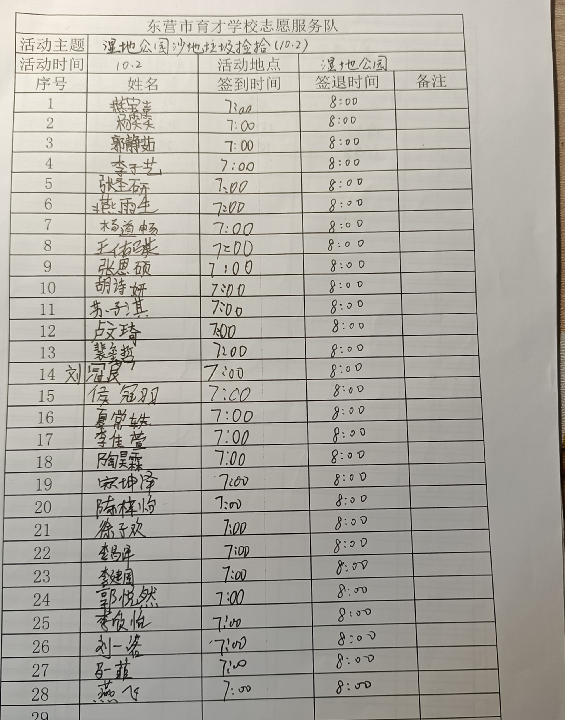 东营市育才学校志愿服务队
活动主题 湿地公园沙地垃圾捡拾(10.2)
活动时间 10.2 活动地点 湿地公园
序号 姓名 签到时间 签退时间 备注
1 7:00 8:00
2 杨奕奕 7:00 8:00
3 郭静茹 7:00 8:00
4 李子艺 7:00 8:00
5 张圣研 7:00 8:00
6 燕雨生 7:00 8:00
7 杨道畅 7:00 8:00
8 王佑琪 7:00 8:00
9 张恩硕 7:00 8:00
10 胡诗妍 7:00 8:00
11 苏子淇 7:00 8:00
12 卢文琦 7:00 8:00
13 7:00 8:00
14 刘冠良 7:00 8:00
15 侯冠羽 7:00 8:00
16 夏常轶 7:00 8:00
17 李佳萱 7:00 8:00
18 陶昊霖 7:00 8:00
19 宋坤泽 7:00 8:00
20 陈梓怡 7:00 8:00
21 徐子欢 7:00 8:00
22 7:00 8:00
23 李建国 7:00 8:00
24 郭悦然 7:00 8:00
25 李欣怡 7:00 8:00
26 刘一诺 7:00 8:00
27 7:00 8:00
28 燕飞 7:00 8:00
29